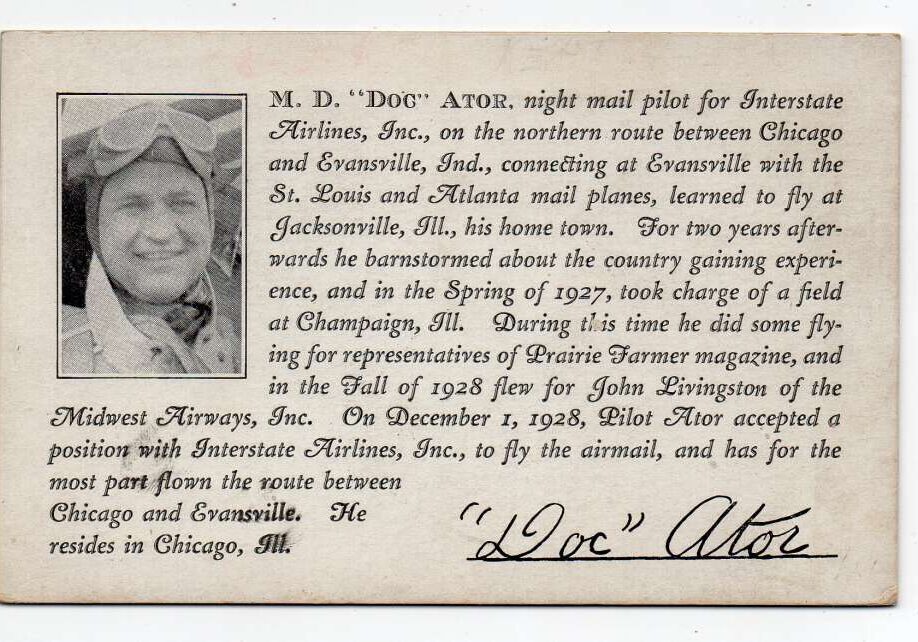 M. D. "DOC" ATOR, night mail pilot for Interstate
Airlines, Inc., on the northern route between Chicago
and Evansville, Ind., connecting at Evansville with the
St. Louis and Atlanta mail planes, learned to fly at
Jacksonville, Ill., his home town. For two years after-
wards he barnstormed about the country gaining experi-
ence, and in the Spring of 1927, took charge of a field
at Champaign, Ill. During this time he did some fly-
ing for representatives of Prairie Farmer magazine, and
in the Fall of 1928 flew for John Livingston of the
Midwest Airways, Inc. On December 1, 1928, Pilot Ator accepted a
position with Interstate Airlines, Inc., to fly the airmail, and has for the
most part flown the route between
Chicago and Evansville. He
resides in Chicago, Ill.
"Doc" Ator